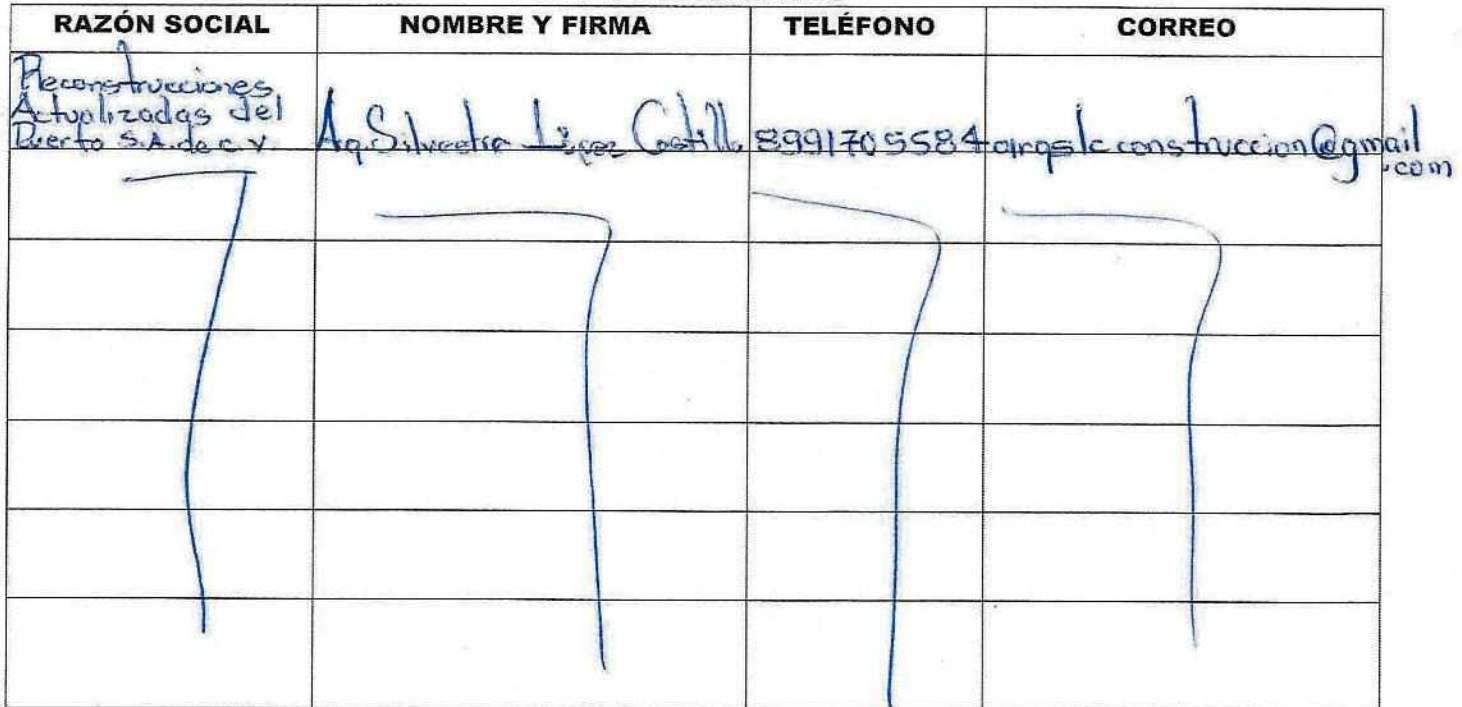 RAZÓN SOCIAL NOMBRE Y FIRMA TELÉFONO CORREO
Reconstrucciones
Actualizadas del
Puerto S.A. de c.v. Aq. Silvestre López Castillo 8991705584 arqslcconstruccion@gmail
.com